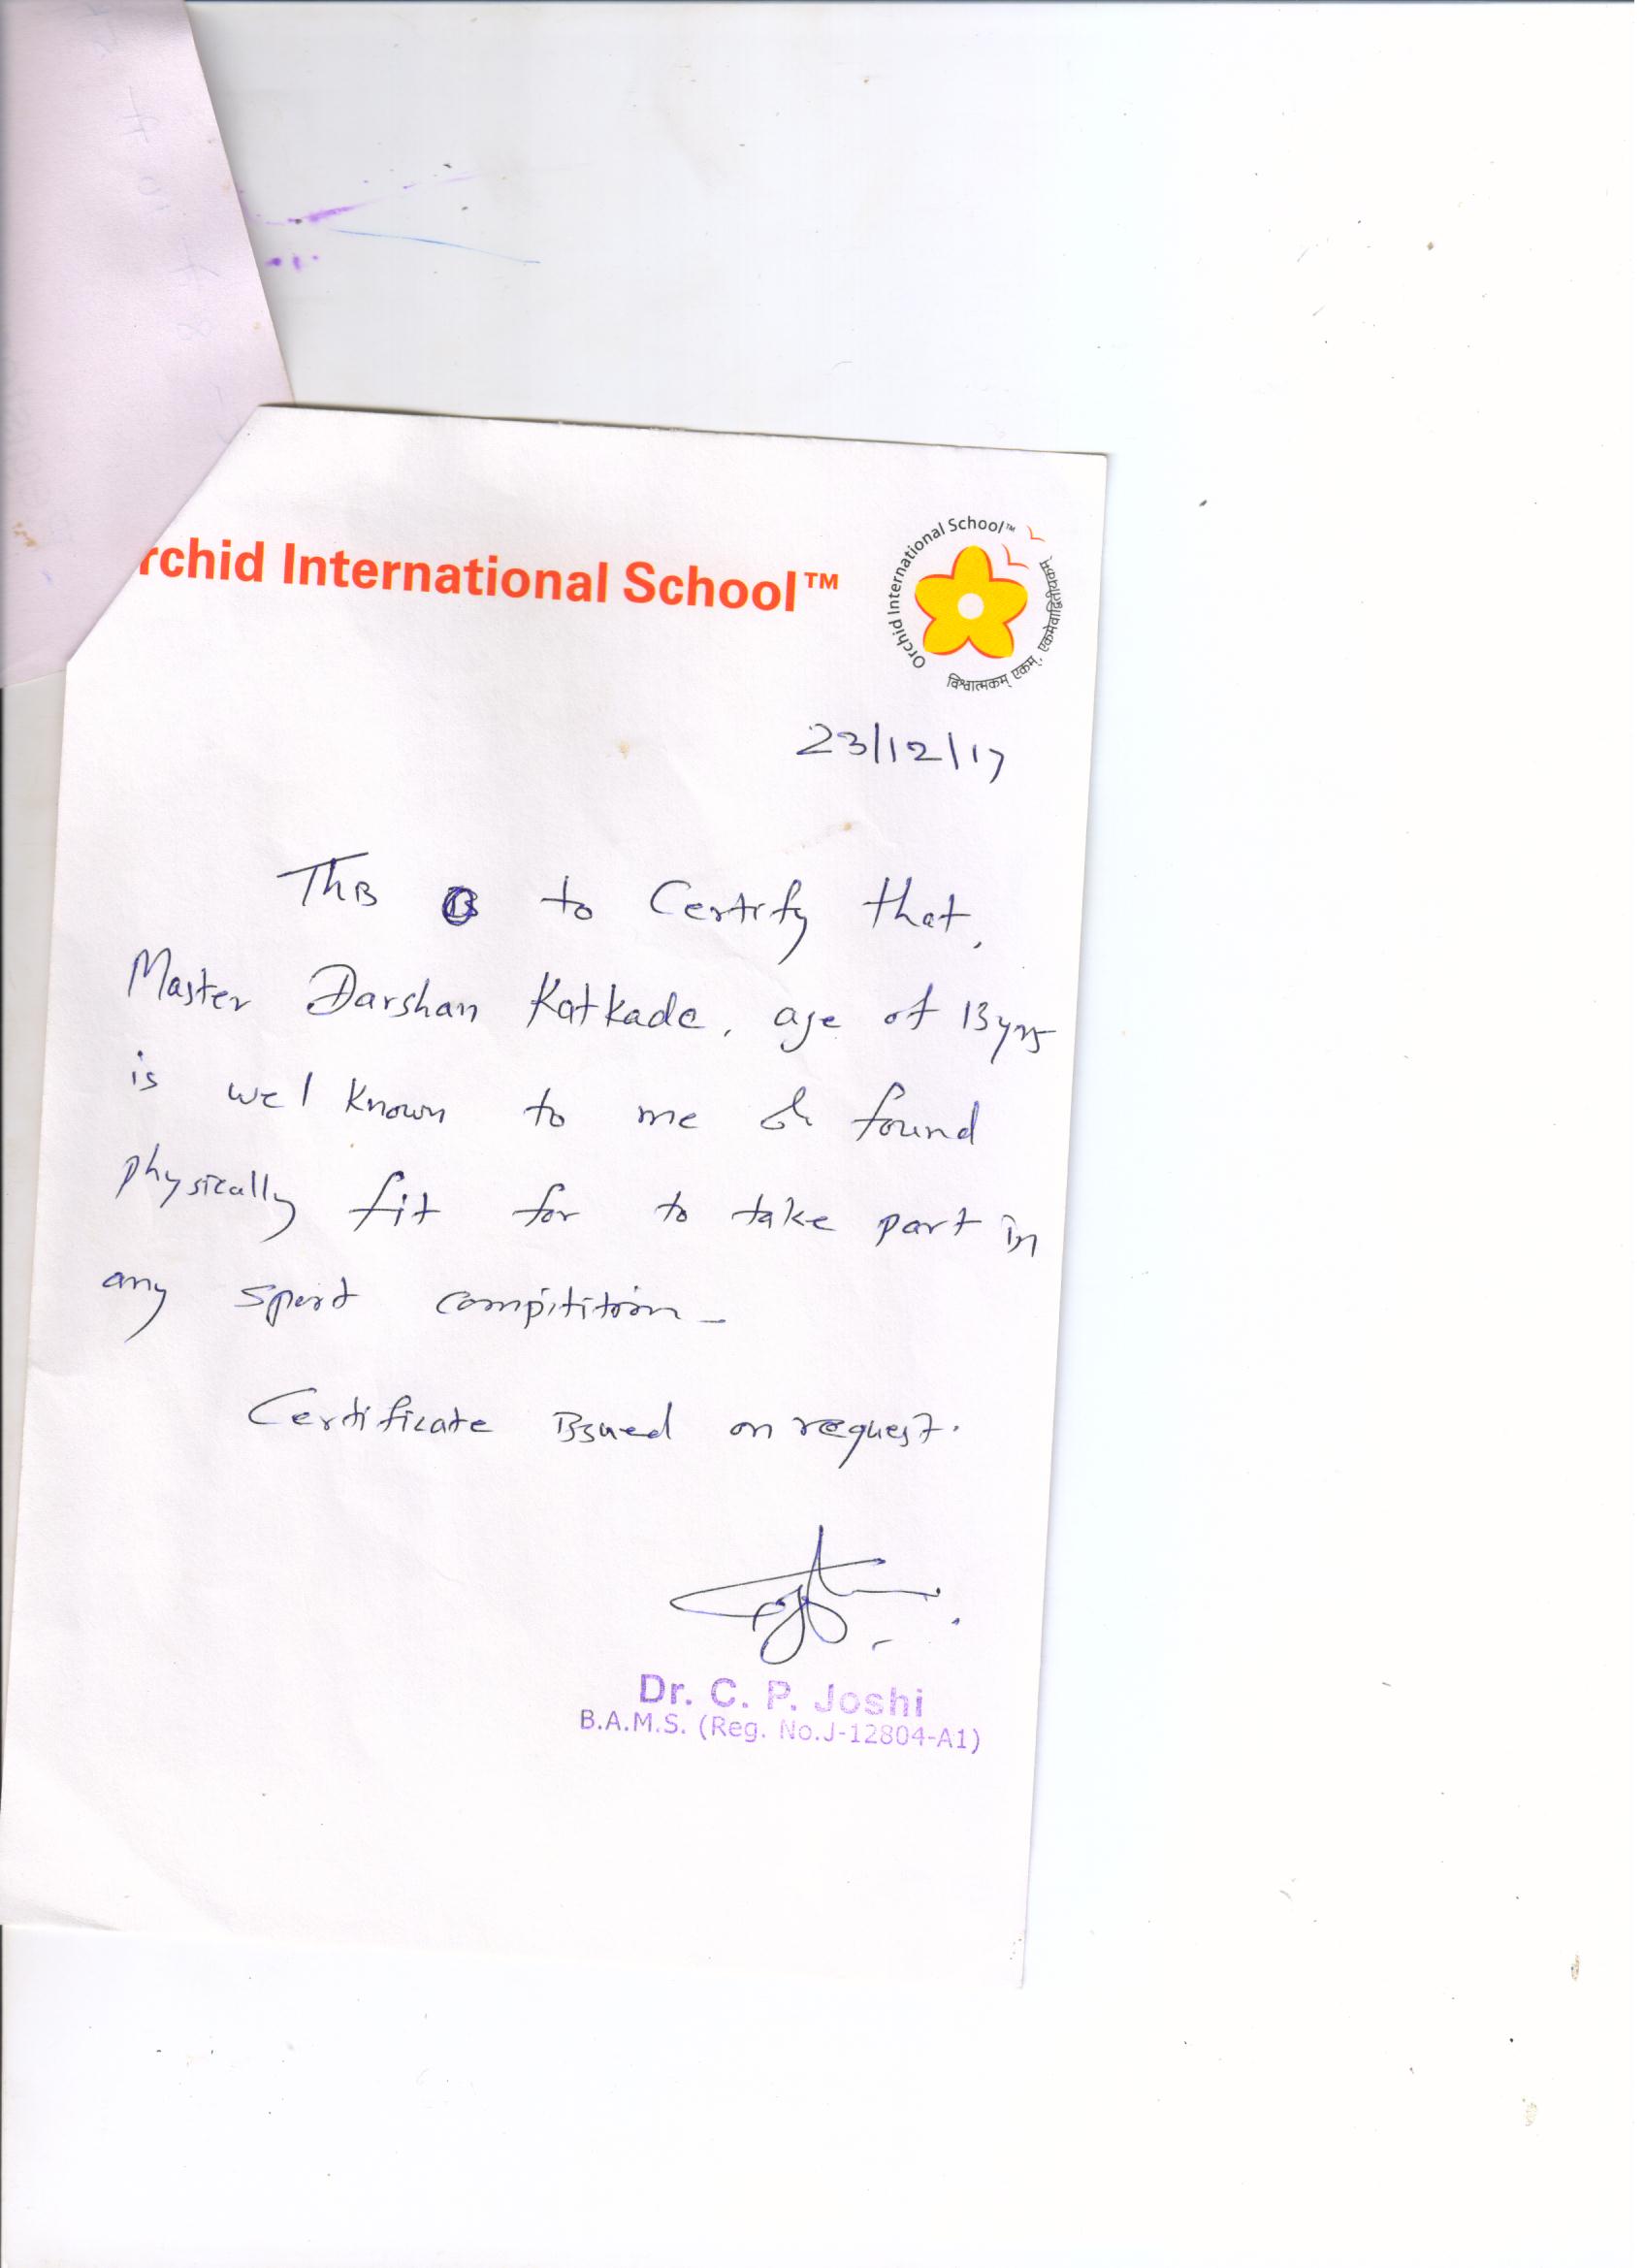 rchid International School™
Orchid International School™
विश्वात्मकम् एकम्, एकमेवाद्वितीयकम्
23/12/17
This is to Certify that,
Master Darshan Katkade, age of 13 yrs
is wel known to me & found
physically fit for to take part in
any sport compitition
Certificate issued on request.
Dr. C. P. Joshi
B.A.M.S. (Reg. No.J-12804-A1)